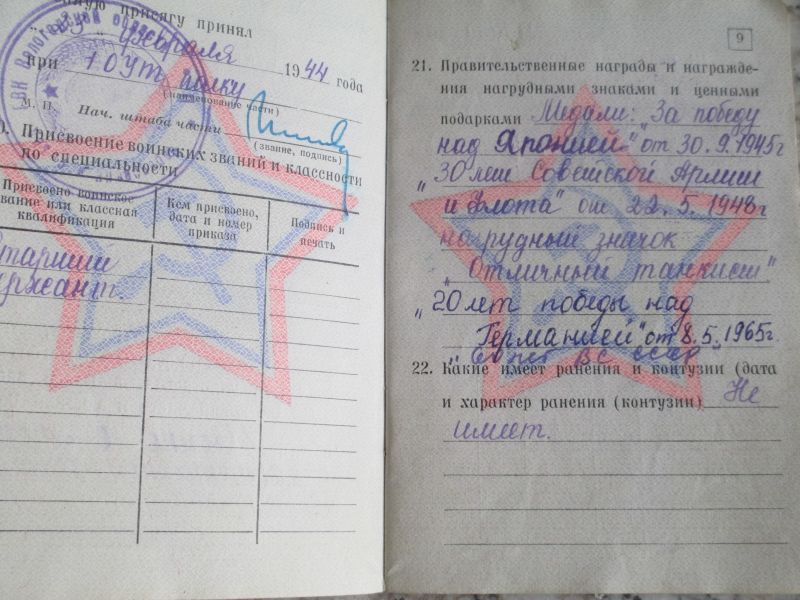 ную присягу принял
февраля 1944 года
при 10 Ут. полку
(наименование части)
М. П. Нач. штаба части
(звание, подпись)
Присвоение воинских званий и классности
по специальности
Присвоено воинское
звание или классная
квалификация
Кем присвоено,
дата и номер
приказа
Подпись и
печать
Старший
сержант.
9
21. Правительственные награды и награжде-
ния нагрудными знаками и ценными
подарками Медали: "За победу
над Японией" от 30.9.1945г
"30 лет Советской Армии
и Флота" от 22.5.1948г
нагрудный значок
"Отличный танкист"
"20 лет победы над
Германией" от 8.5.1965г.
ВС СССР"
22. Какие имеет ранения и контузии (дата
и характер ранения (контузии) Не
имеет.